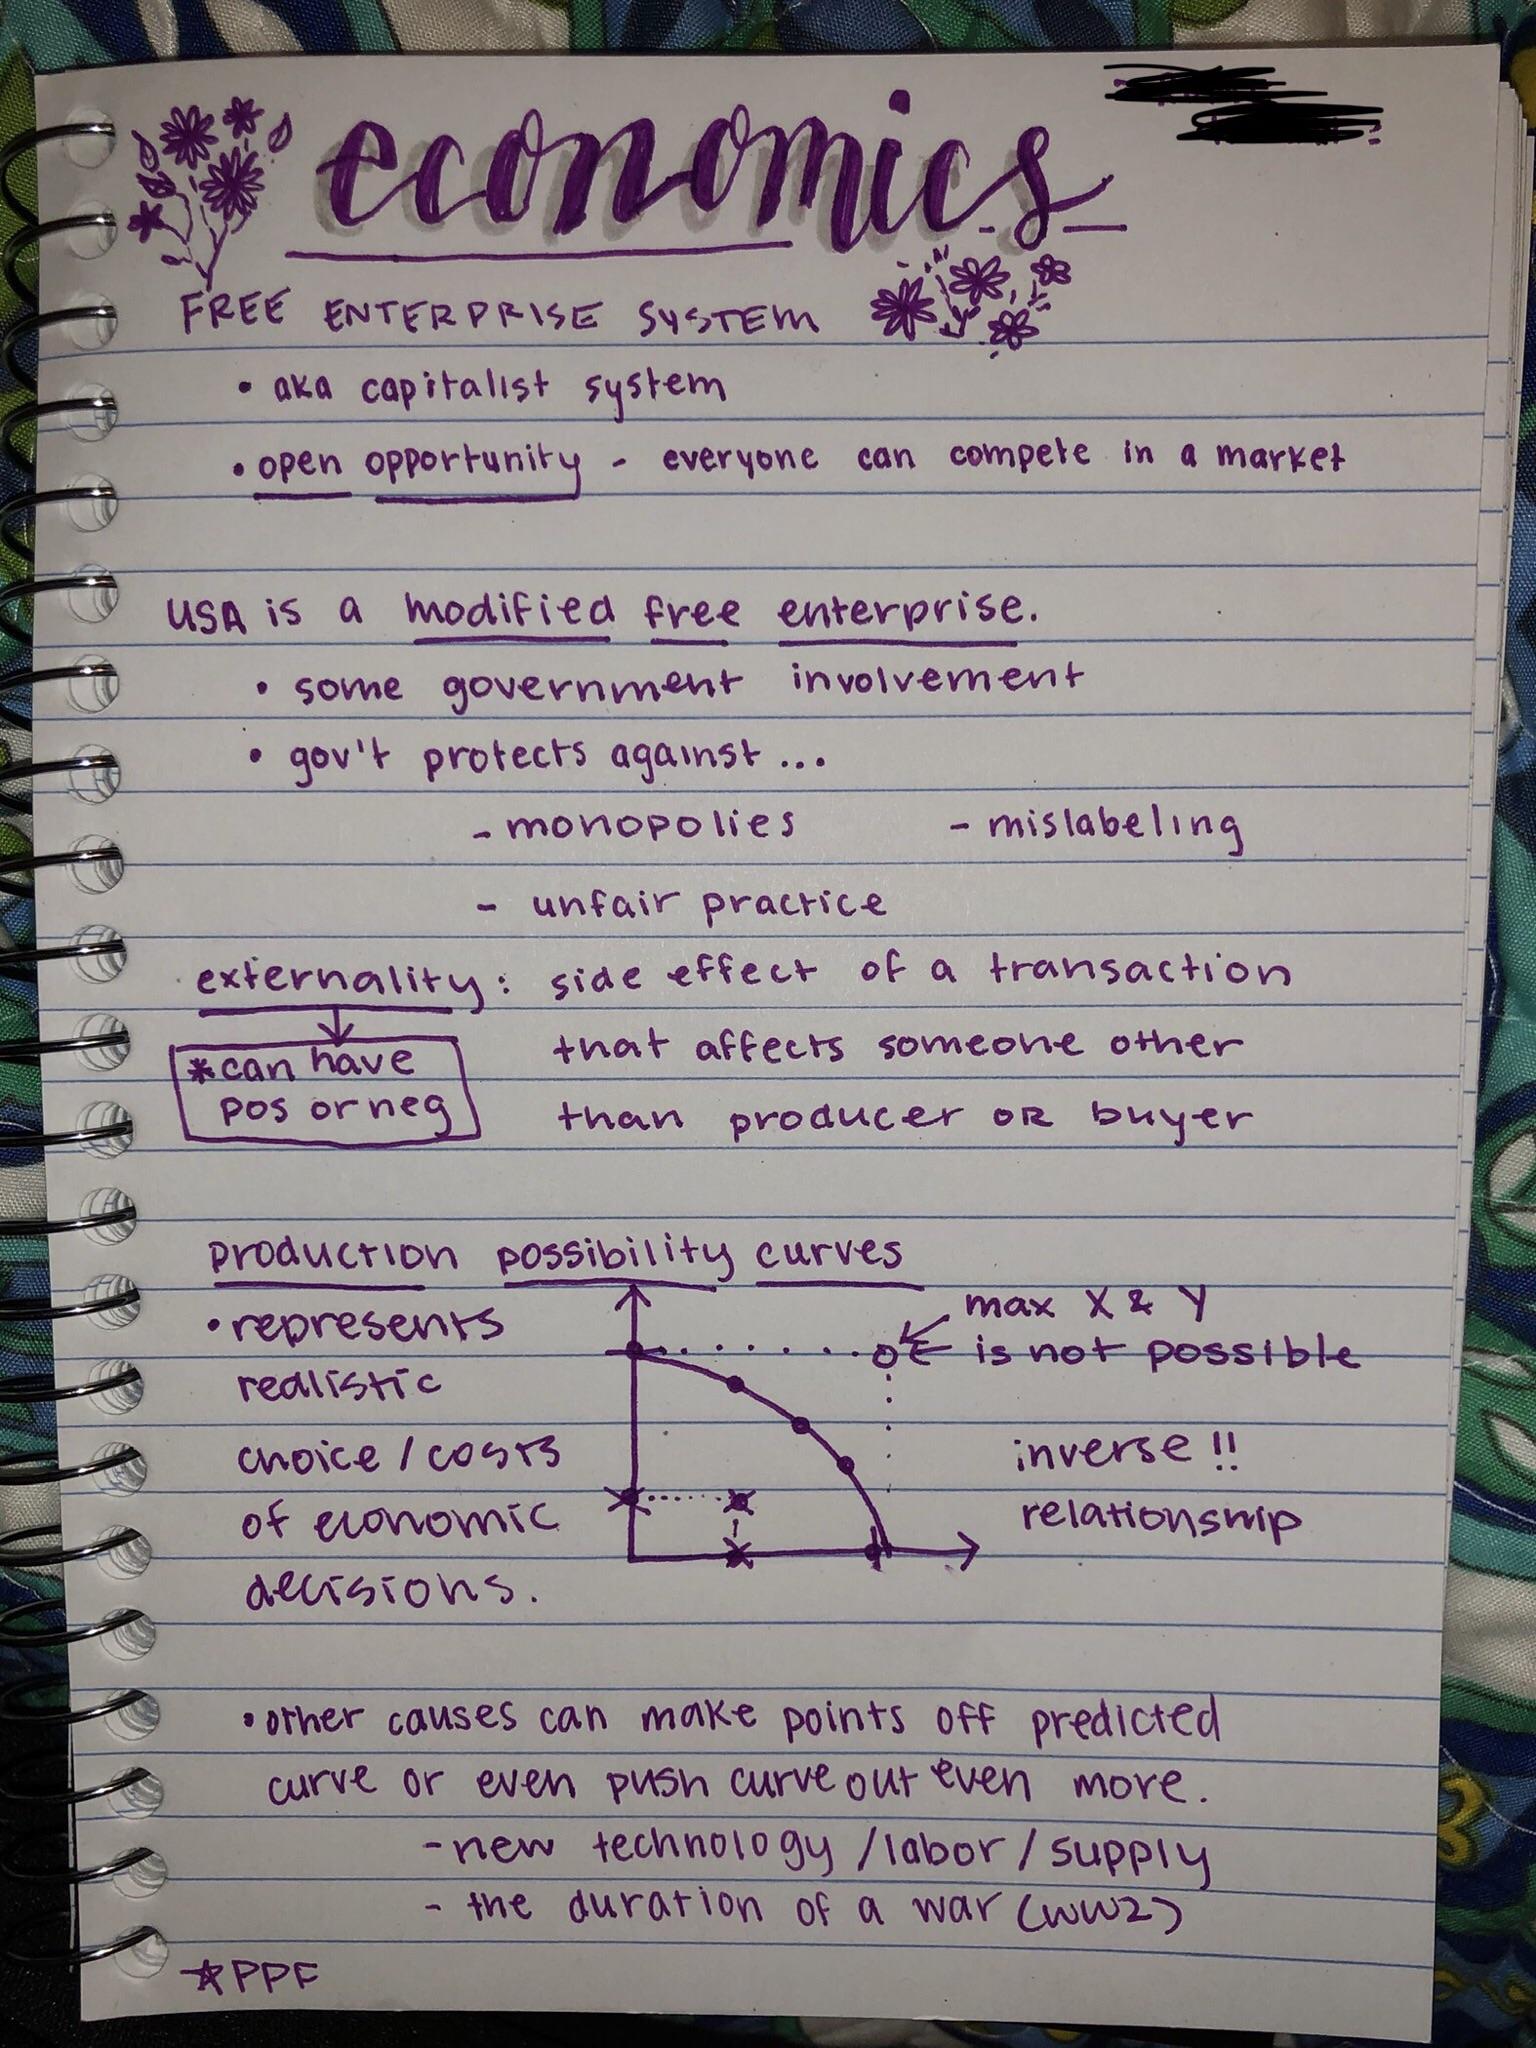 economics
FREE ENTERPRISE SYSTEM
• aka capitalist system
• open opportunity - everyone can compete in a market
USA is a modified free enterprise.
• some government involvement
• gov't protects against...
- monopolies - mislabeling
- unfair practice
externality: side effect of a transaction
that affects someone other
than producer OR buyer
*can have
pos or neg
production possibility curves
• represents
realistic
choice/costs
of economic
decisions.
max X & Y
is not possible
inverse!!
relationship
• other causes can make points off predicted
curve or even push curve out even more.
- new technology/labor/supply
- the duration of a war (WW2)
☆PPF